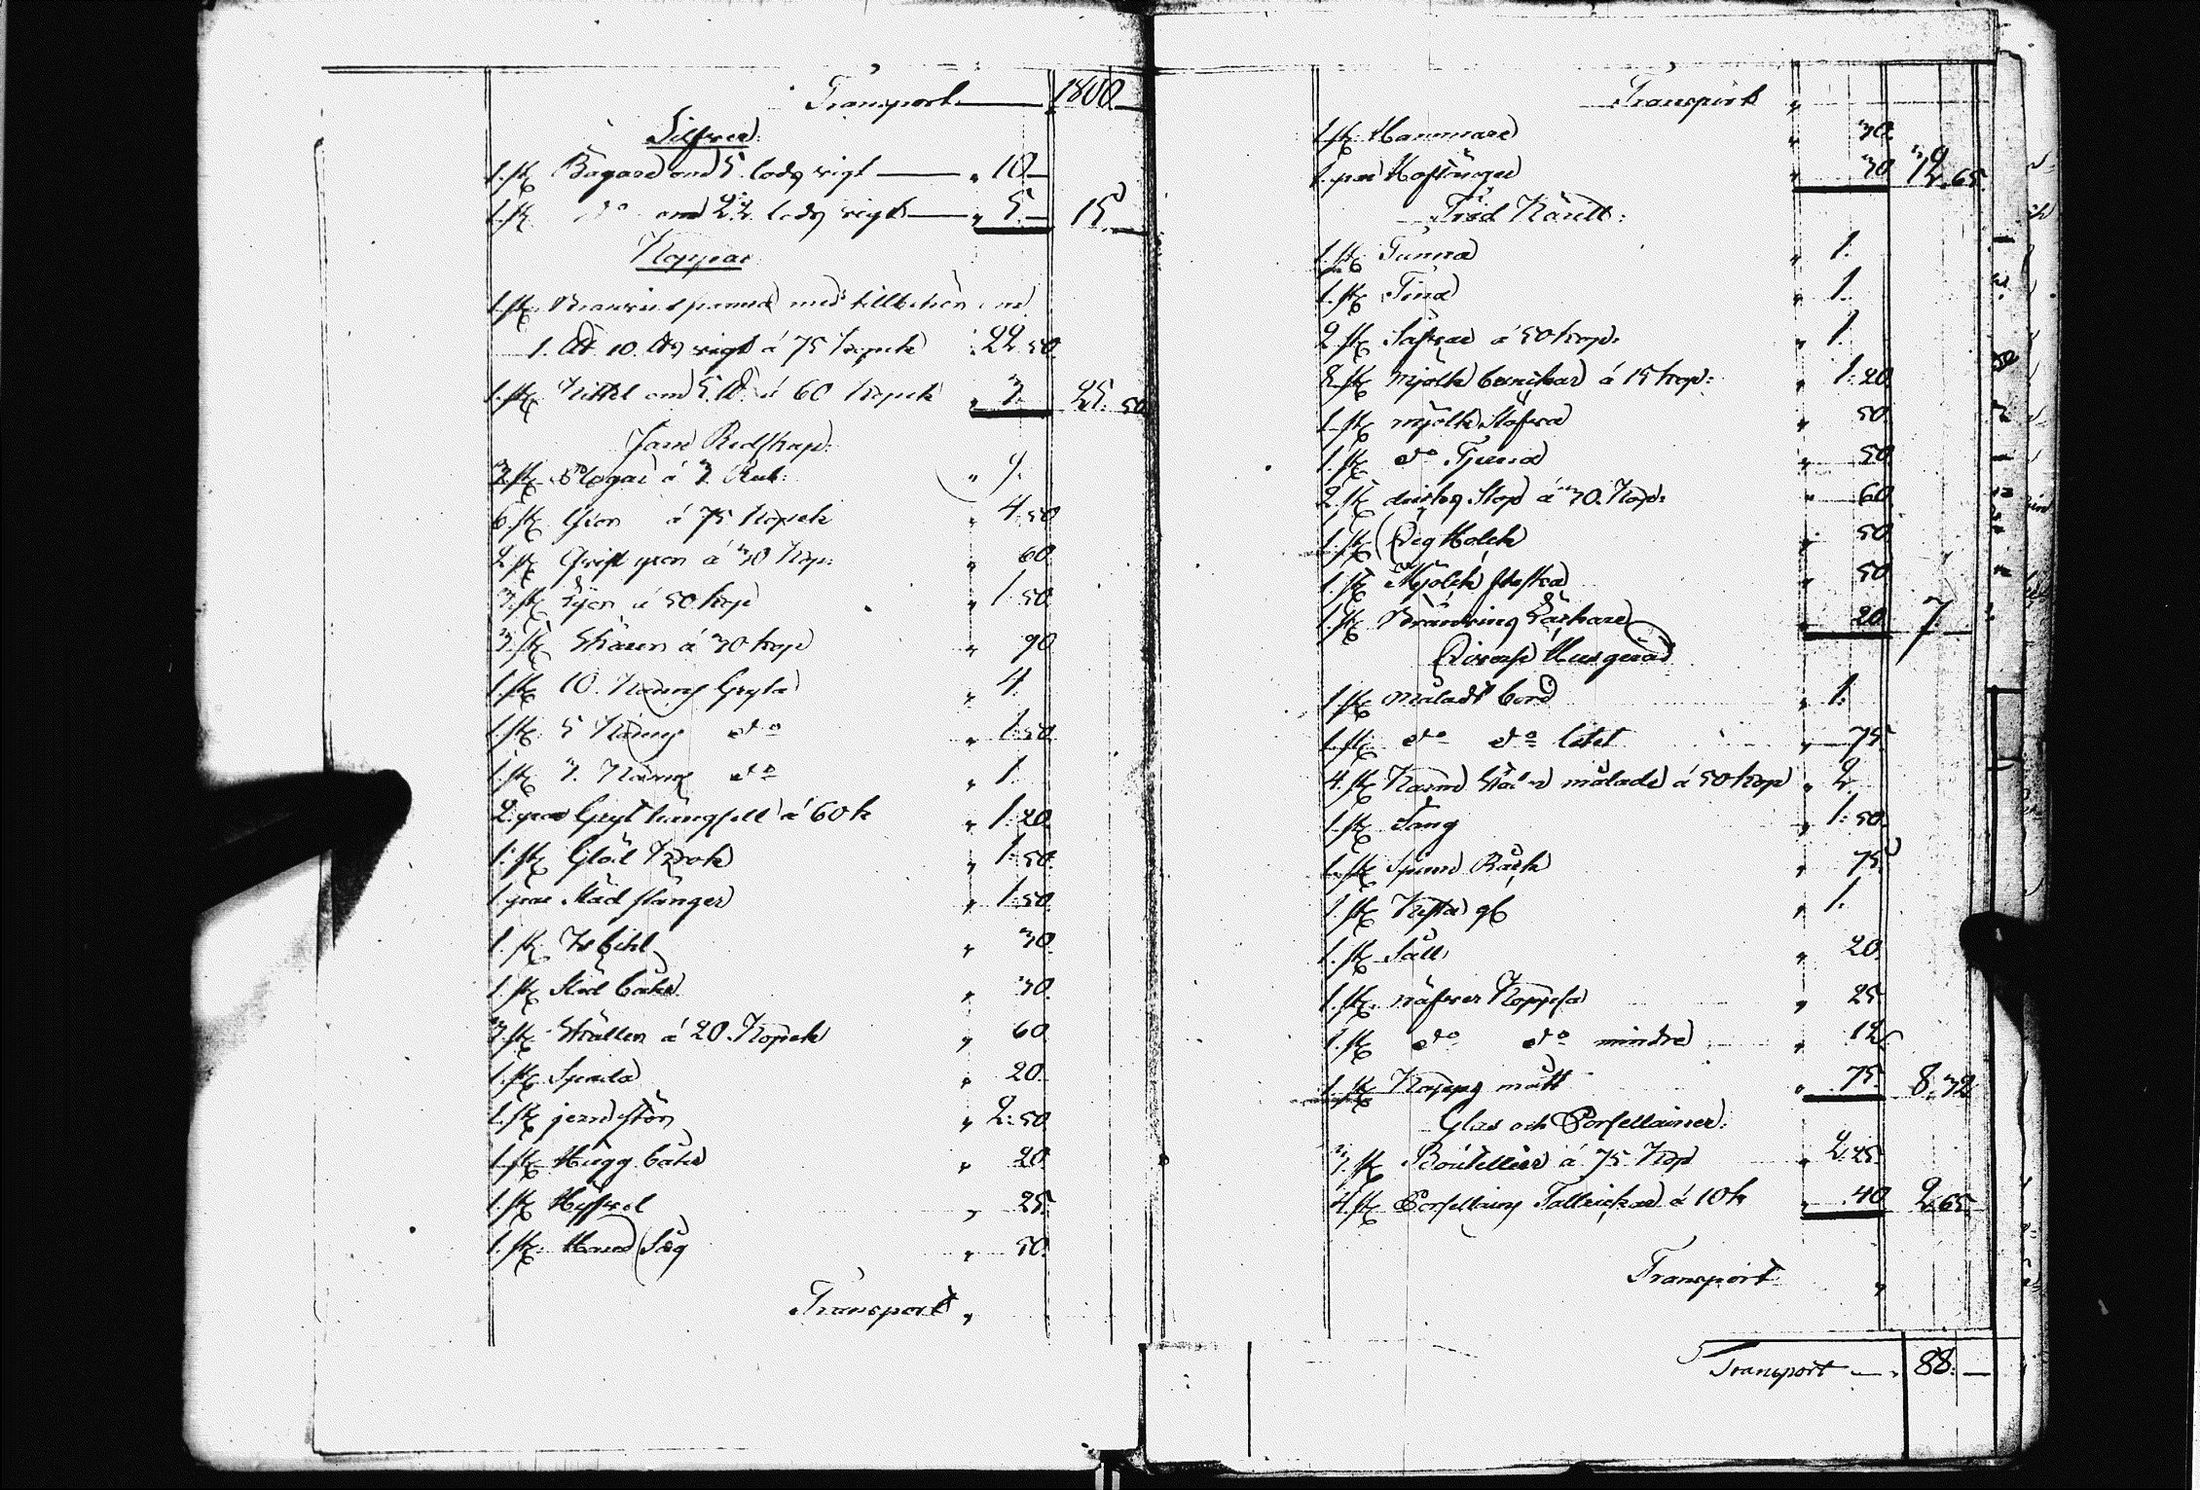 Transport — 1800 —
Silfver:
1. st. Bägare om 5 lods vigt — " 10 —
1. st. do om 2½ lods vigt — " 5. — 15. —
Koppar
1. st. Brännvins panna med tillbehör
1. L℔ 10. ℔s vigt á 75 kopek : 22 50
1. st. Kittel om 5. ℔ á 60 kopek " 3. 25: 50
Jern Redskap:
3. st. Plogar á 3 Rub: " 9.
6. st. á 75 Kopek " 4. 50
2. st. á 30 Kop: " 60
3. st. á 50 kop " 1. 50
3. st. Skäror á 30 kop " 90
1. st. 10. Kanns Gryta " 4.
1. st. 5 Kanns do " 1. 50
1. st. 3. Kanns do " 1.
2. par á 60 k " 1: 20.
1. st. Glöd Krok " 1: 50.
1 par Städ stänger " 1: 50.
1. st. " 30.
1. st. " 30.
3. st. á 20. Kopek " 60
1. st. Spada " 20.
1. st. jern stör " 2: 50
1. st. Hugg " 20
1. st. Hyffvel " 25.
1. st. Hand Såg " 50.
Transport "
Transport "
1. st. Hammare " 30
1. par Hoftänger " 30 32. 65.
Träd Käril:
1. st. Tunna " 1.
1. st. Tina " 1.
2. st. Såfvar á 50 kop: " 1.
8. st. mjölk bunkar á 15 kop: " 1: 20.
1. st. mjölk Stäfva " 50.
1. st. do Tjuna " 50
2. st. Stop á 30. Kop: " 60
1. st. Deg Holck " 50
1. st. Mjölck " 50
1. st. Bränvins Kärhare " 20 7. —
Diverse Husgeråd
1. st. måladt bord " 1.
1. st. do do litet " 75.
4. st. Karm Stolar målade á 50 kop " 2
1. st. Säng " 1: 50.
1. st. Spinn Råck " 75.
1. st. Kista " 1.
1. st. Såll " 20.
1. st. näfver Koppsa " 25
1. st. do do mindre " 12
1. st. Kapps mått " 75. 8. 32
Glas och Porsellainer:
3. st. Boutellier á 75 Kop " 2. 25.
4. st. Porsellains Tallrickar á 10 k " 40 2. 65.
Transport "
Transport — " 88: —